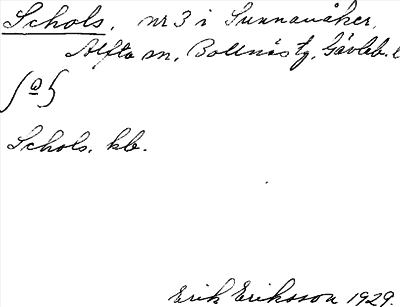 Schols, nr 3 i Sunnanåker,
Alfta sn, Bollnäs tg, Gävleb. l
Schols, kb.
Erik Eriksson 1929.